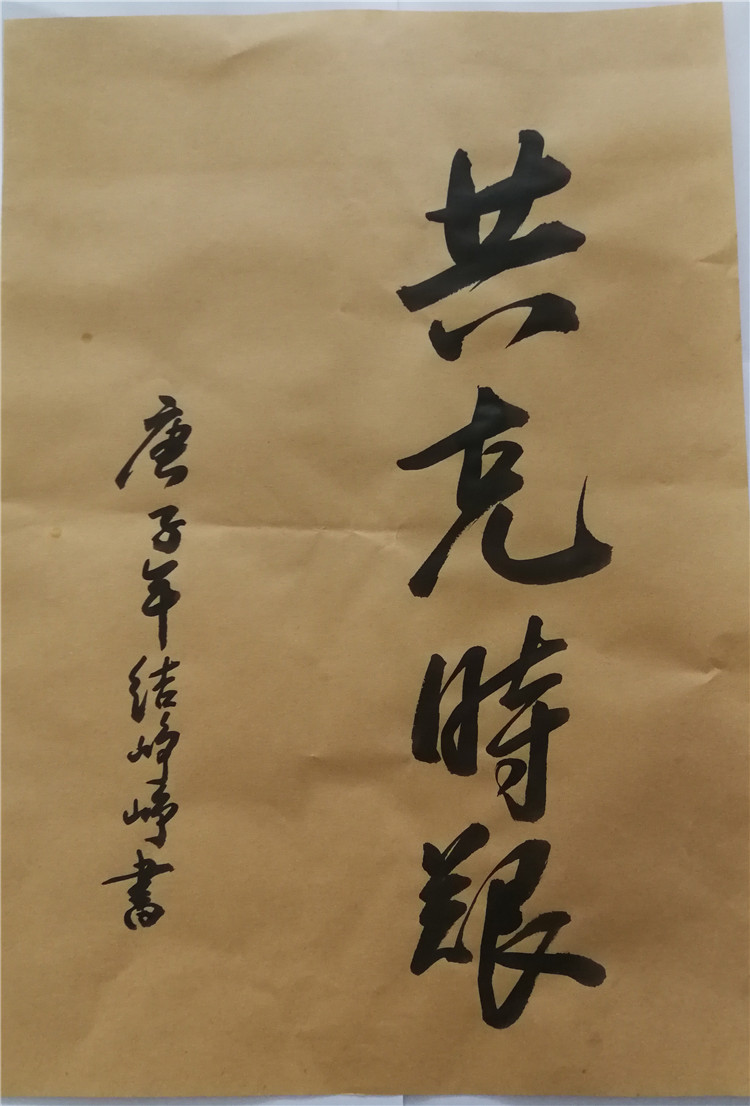 共克時艱
庚子年结峥峥書